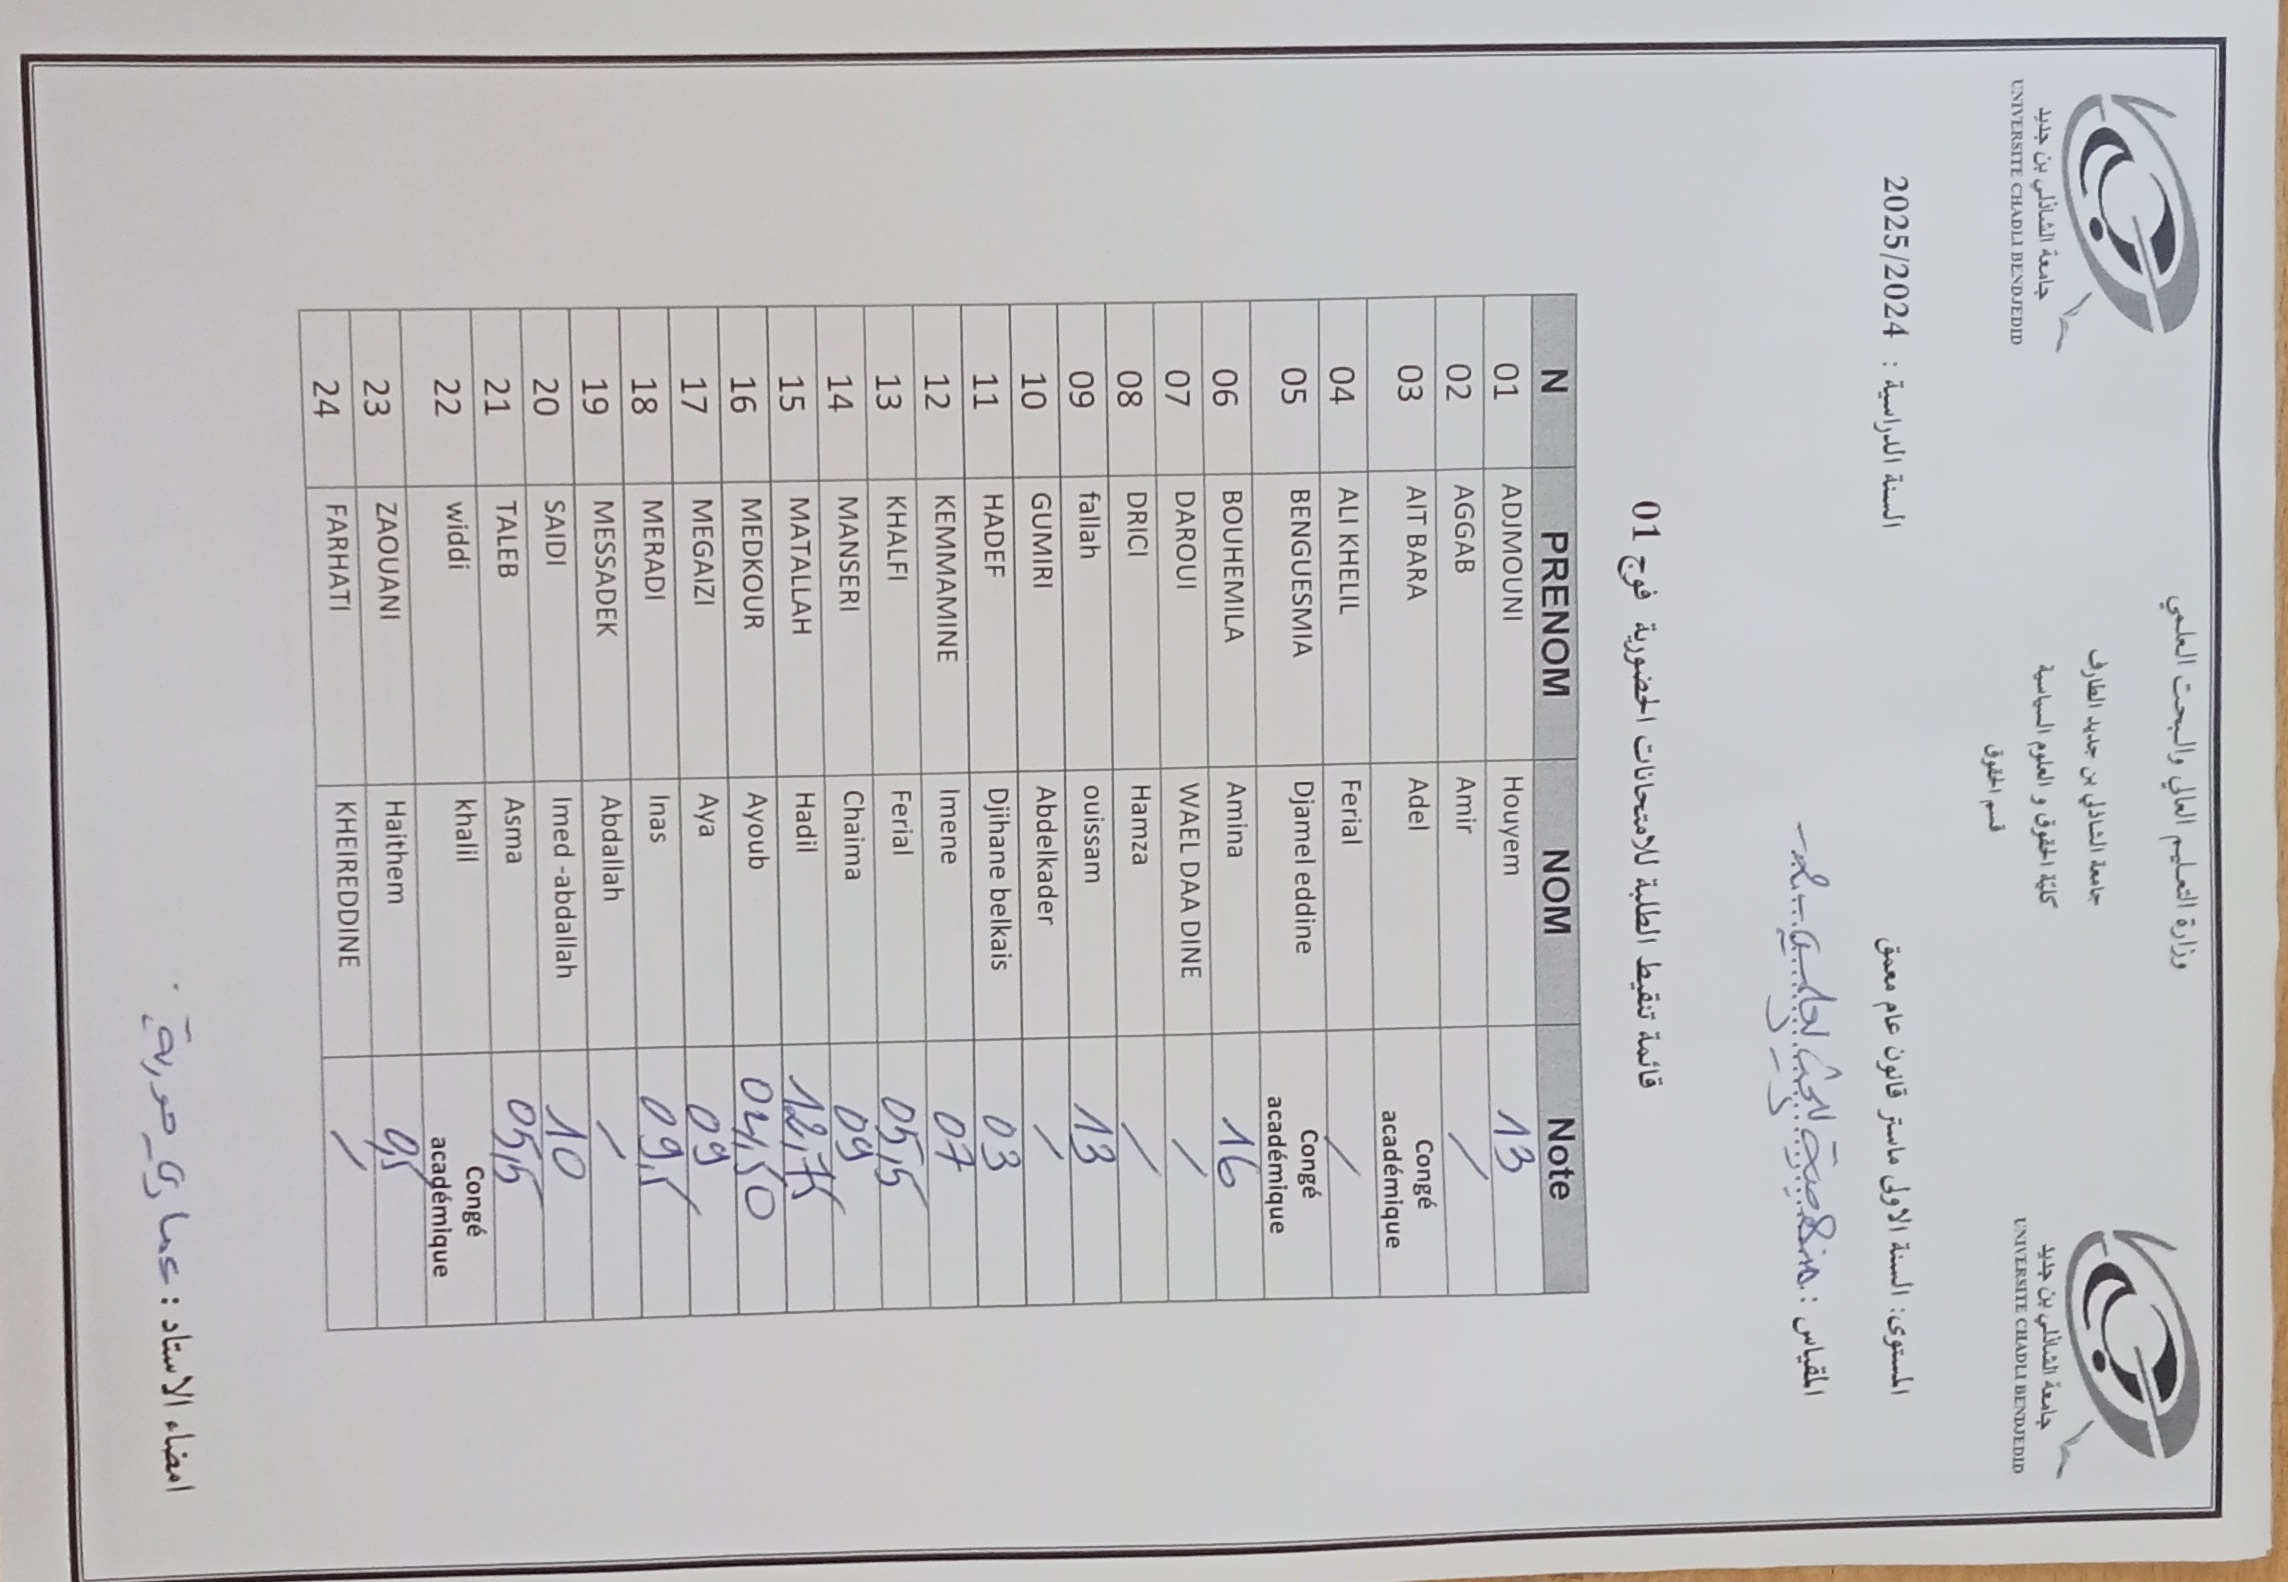 وزارة التعليم العالي والبحث العلمي
جامعة الشاذلي بن جديد الطارف
كلية الحقوق و العلوم السياسية
قسم الحقوق
جامعة الشاذلي بن جديد
UNIVERSITE CHADLI BENDJEDID
جامعة الشاذلي بن جديد
UNIVERSITE CHADLI BENDJEDID
المستوى: السنة الاولى ماستر قانون عام معمق
السنة الدراسية : 2025/2024
المقياس : منهجية البحث العلمي
قائمة تنقيط الطلبة للامتحانات الحضورية فوج 01
N PRENOM NOM Note
01 ADJMOUNI Houyem 13
02 AGGAB Amir /
03 AIT BARA Adel Congé académique
04 ALI KHELIL Ferial /
05 BENGUESMIA Djamel eddine Congé académique
06 BOUHEMILA Amina 16
07 DAROUI WAEL DAA DINE /
08 DRICI Hamza /
09 fallah ouissam 13
10 GUMIRI Abdelkader /
11 HADEF Djihane belkais 03
12 KEMMAMINE Imene 07
13 KHALFI Ferial 05,5
14 MANSERI Chaima 09
15 MATALLAH Hadil 12,75
16 MEDKOUR Ayoub 04,50
17 MEGAIZI Aya 09
18 MERADI Inas 09,5
19 MESSADEK Abdallah /
20 SAIDI Imed -abdallah 10
21 TALEB Asma 05,5
22 widdi khalil Congé académique
23 ZAOUANI Haithem 9,5
24 FARHATI KHEIREDDINE /
امضاء الاستاد :